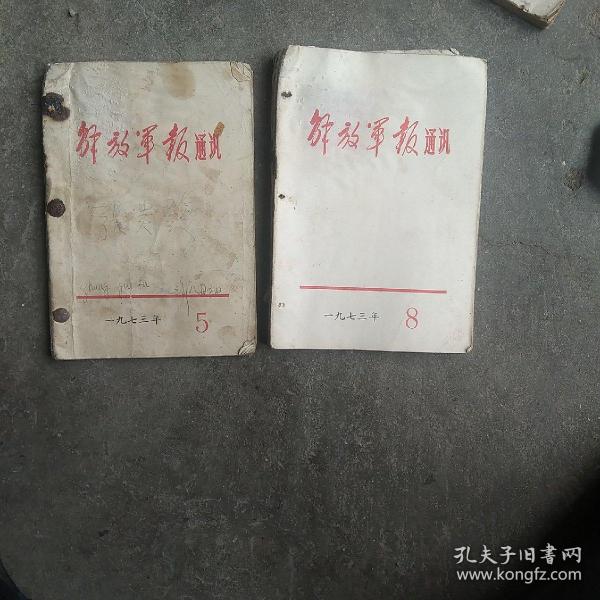 解放军报通讯
一九七三年 5
解放军报通讯
一九七三年 8
孔夫子旧书网
www.kongfz.com